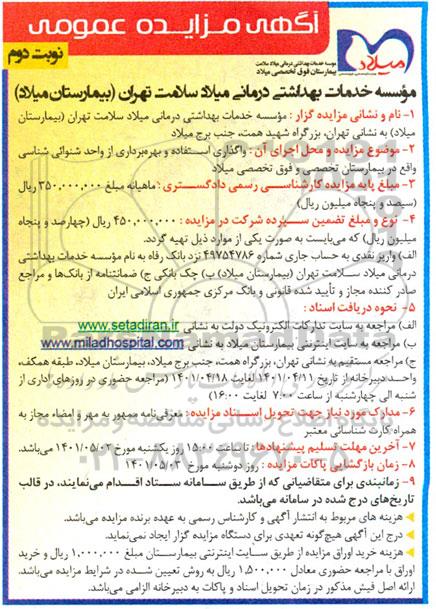 آگهی مزایده عمومی
نوبت دوم
میلاد
موسسه خدمات بهداشتی درمانی میلاد سلامت
بیمارستان فوق تخصصی میلاد
مؤسسه خدمات بهداشتی درمانی میلاد سلامت تهران (بیمارستان میلاد)
۱- نام و نشانی مزایده گزار : مؤسسه خدمات بهداشتی درمانی میلاد سلامت تهران (بیمارستان
میلاد) به نشانی تهران، بزرگراه شهید همت، جنب برج میلاد
۲- موضوع مزایده و محل اجرای آن : واگذاری استفاده و بهره‌برداری از واحد شنوائی شناسی
واقع در بیمارستان تخصصی و فوق تخصصی میلاد
۳- مبلغ پایه مزایده کارشناسی رسمی دادگستری : ماهیانه مبلغ ۳۵۰,۰۰۰,۰۰۰ ریال
(سیصد و پنجاه میلیون ریال)
۴- نوع و مبلغ تضمین سپرده شرکت در مزایده : ۴۵۰,۰۰۰,۰۰۰ ریال (چهارصد و پنجاه
میلیون ریال) که می‌بایست به صورت یکی از موارد ذیل تهیه گردد.
الف) واریز نقدی به حساب جاری شماره ۴۹۷۵۴۷۸۶ نزد بانک رفاه به نام مؤسسه خدمات بهداشتی
درمانی میلاد سلامت تهران (بیمارستان میلاد) ب) چک بانکی ج) ضمانتنامه از بانک‌ها و مراجع
صادر کننده مجاز و تأیید شده قانونی و بانک مرکزی جمهوری اسلامی ایران
۵- نحوه دریافت اسناد :
الف) مراجعه به سایت تدارکات الکترونیک دولت به نشانی www.setadiran.ir
ب) مراجعه به سایت اینترنتی بیمارستان میلاد به نشانی www.miladhospital.com
ج) مراجعه مستقیم به نشانی تهران، بزرگراه همت، جنب برج میلاد، بیمارستان میلاد، طبقه همکف،
واحد دبیرخانه از تاریخ ۱۴۰۱/۰۴/۱۱ لغایت ۱۴۰۱/۰۴/۱۸ (مراجعه حضوری در روزهای اداری از
شنبه الی چهارشنبه از ساعت ۷:۰۰ لغایت ۱۶:۰۰)
۶- مدارک مورد نیاز جهت تحویل اسناد مزایده : معرفی‌نامه ممهور به مهر و امضاء مجاز به
همراه کارت شناسائی معتبر
۷- آخرین مهلت تسلیم پیشنهادها : تا ساعت ۱۵:۰۰ روز یکشنبه مورخ ۱۴۰۱/۰۵/۰۲ می‌باشد.
۸- زمان بازگشایی پاکات مزایده : روز دوشنبه مورخ ۱۴۰۱/۰۵/۰۳
۹- زمانبندی برای متقاضیانی که از طریق سامانه ستاد اقدام می‌نمایند، در قالب
تاریخ‌های درج شده در سامانه می‌باشد.
هزینه های مربوط به انتشار آگهی و کارشناس رسمی به عهده برنده مزایده می‌باشد.
درج این آگهی هیچ‌گونه تعهدی برای دستگاه مزایده گزار ایجاد نمی‌نماید.
هزینه خرید اوراق مزایده از طریق سایت اینترنتی بیمارستان مبلغ ۱,۰۰۰,۰۰۰ ریال و خرید
اوراق با مراجعه حضوری معادل ۱,۵۰۰,۰۰۰ ریال به روش تعیین شده در شرایط مزایده می‌باشد.
ارائه اصل فیش مذکور در زمان تحویل اسناد و پاکات به دبیرخانه الزامی می‌باشد.